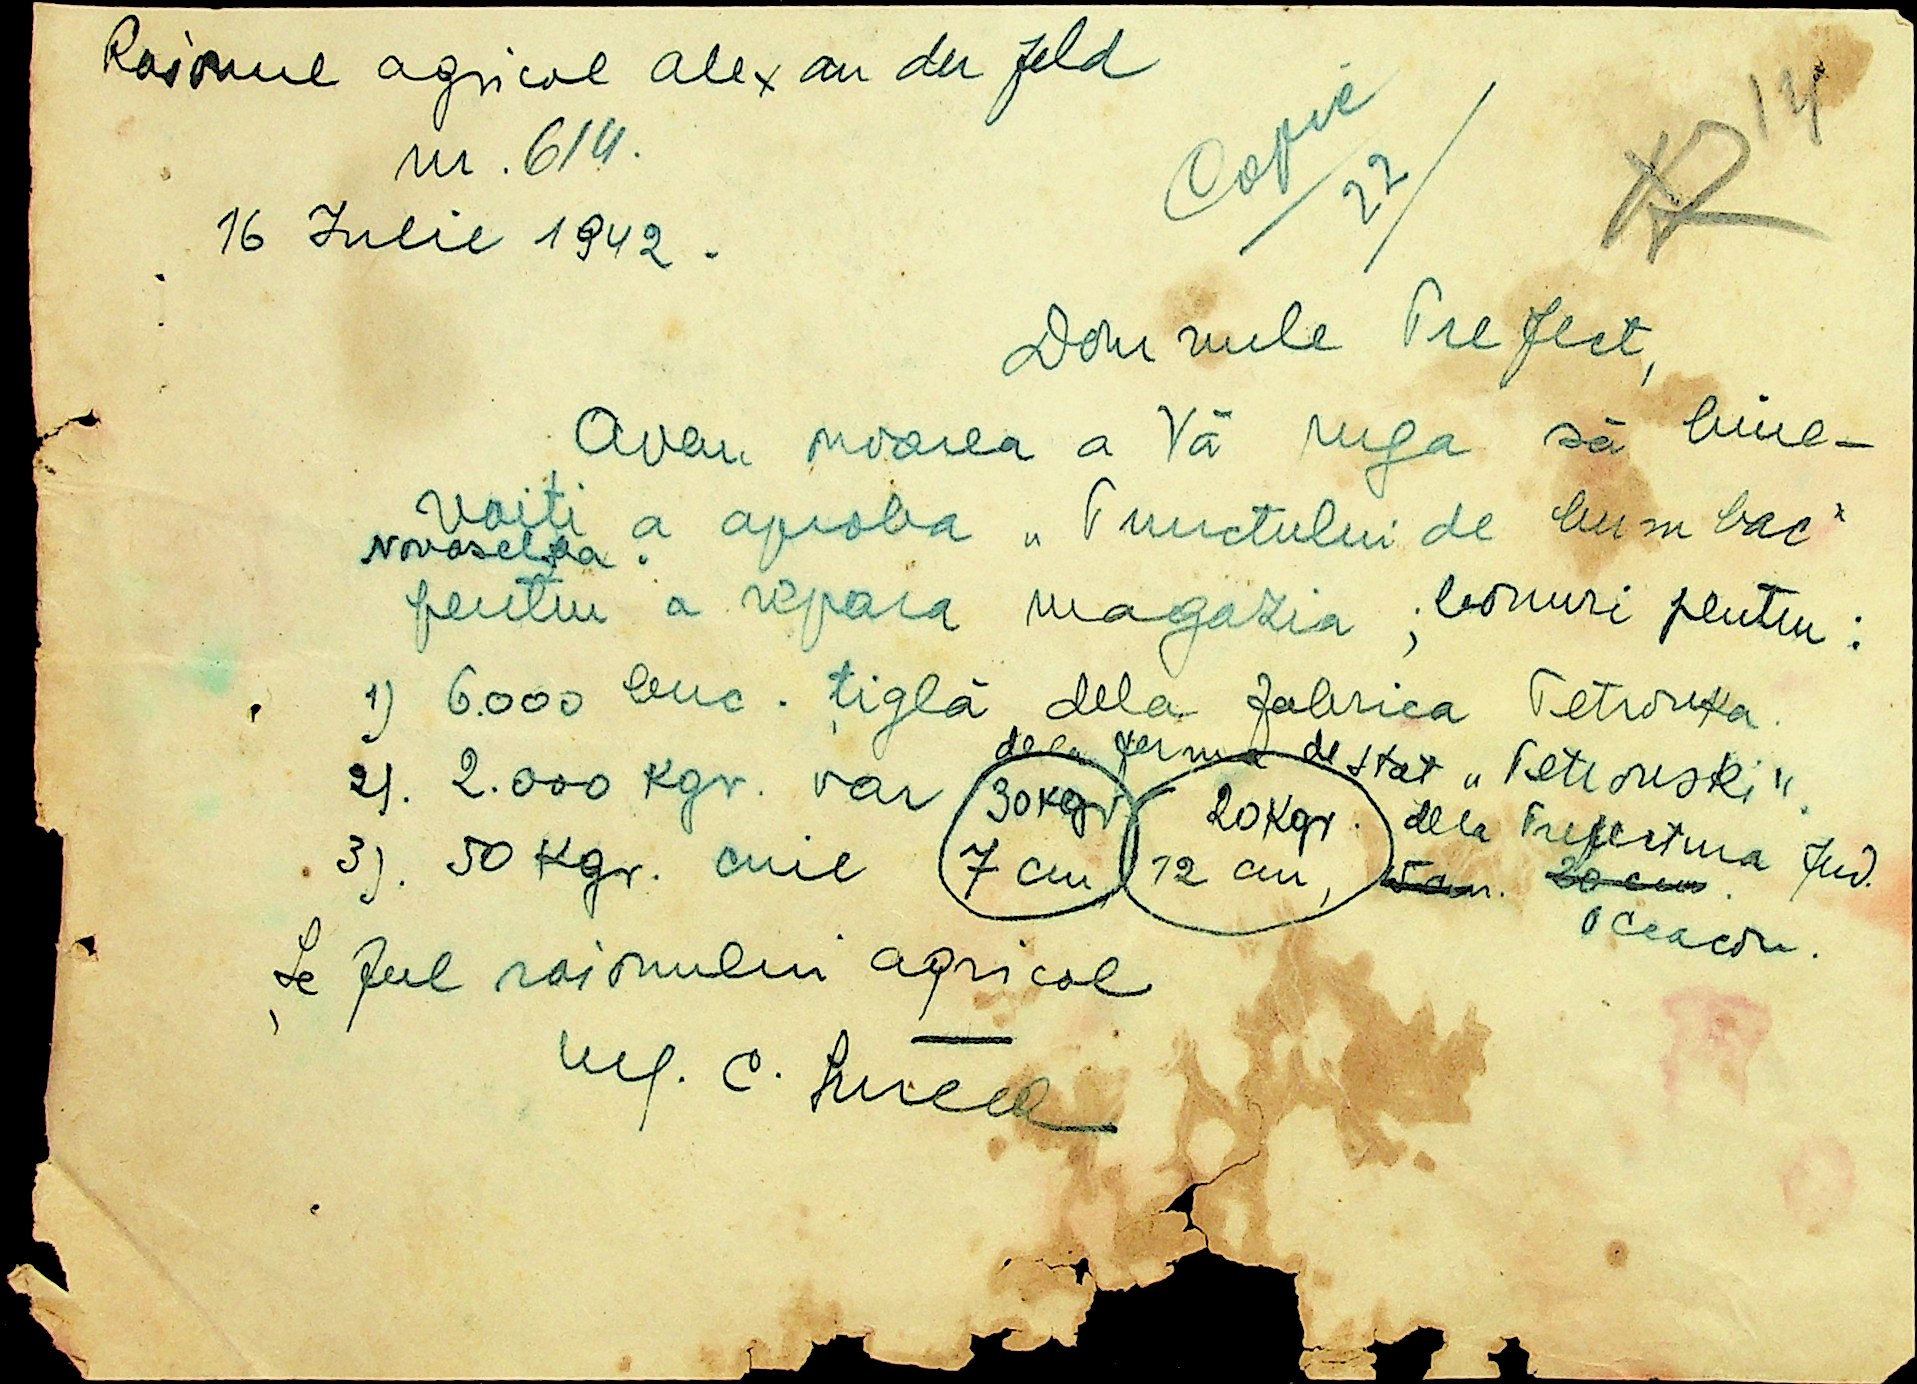 Raionul agricol Alexanderfeld
nr. 614.
16 Iulie 1942.
Copie
22
14
Domnule Prefect,
Avem onoarea a Vă ruga să bine-
voiți a aproba „Punctului de bumbac"
Novoselka.
pentru a repara magazia ; bonuri pentru :
1) 6.000 buc. țiglă dela fabrica Petrovka.
dela ferma de stat „Petrovski".
2). 2.000 Kgr. var
30 Kgr 20 Kgr. dela Prefectura Jud.
3). 50 Kgr. cuie 7 cm 12 cm, 15 cm. 20 cm.
Oceacov.
Șeful raionului agricol
Ing. C.